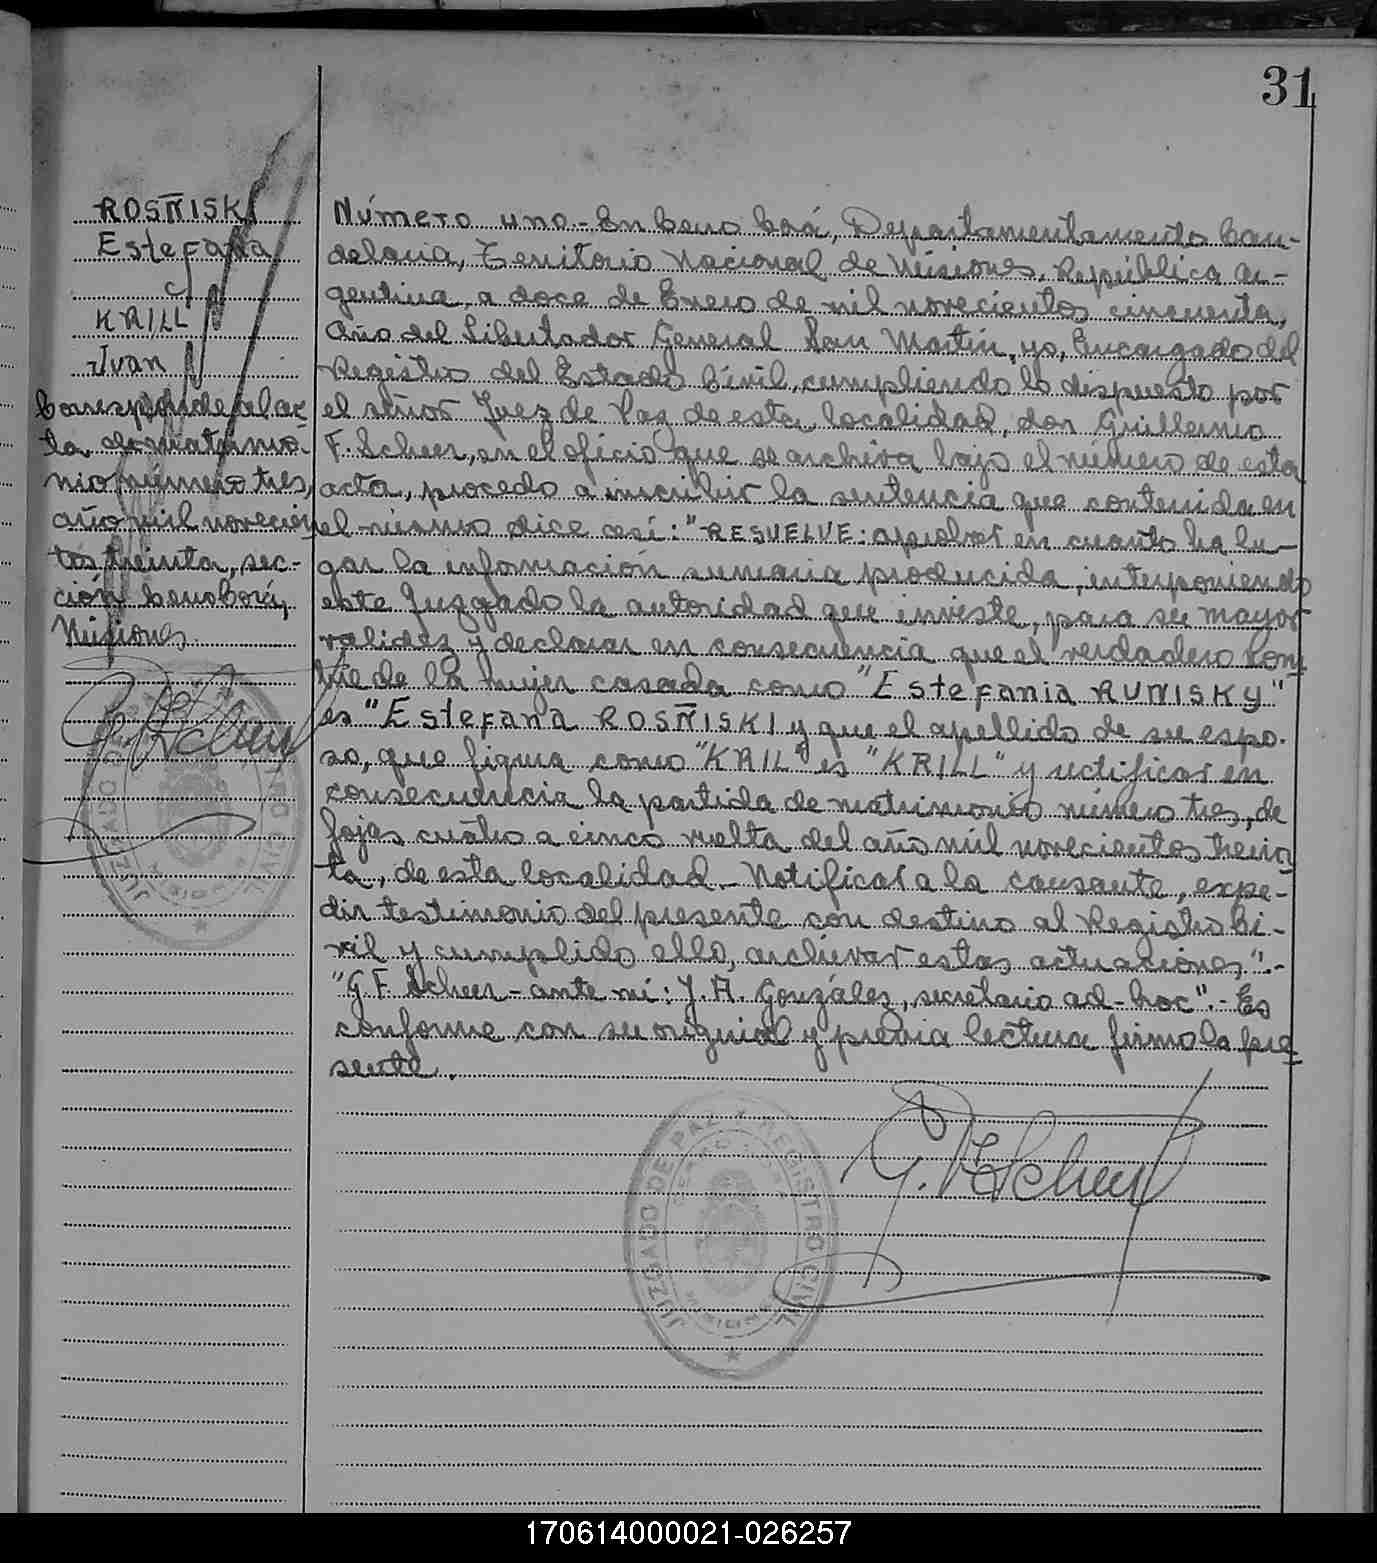 31
ROSÑISKI
Estefana
c/
KRILL
Ivan
Corresponde al ac
ta de matrimo-
nio número tres,
año mil novecien
tos treinta, sec-
ción Cerro Corá,
Misiones.
Número uno.- En Cerro Corá, Departamentamento Can-
delaria, Territorio Nacional de Misiones, República Ar-
gentina, a doce de Enero de mil novecientos cincuenta,
Año del Libertador General San Martín, yo, Encargado del
Registro del Estado Civil, cumpliendo lo dispuesto por
el señor Juez de Paz de esta localidad, don Guillermo
F. Scheer, en el oficio que se archiva bajo el número de esta
acta, procedo a inscribir la sentencia que contenida en
el mismo dice así: "RESUELVE: aprobar en cuanto ha lu-
gar la información sumaria producida, interponiendo
este Juzgado la autoridad que inviste, para su mayor
validez y declarar en consecuencia que el verdadero nom-
bre de la mujer casada como "Estefania RUNISKY"
es "Estefana ROSÑISKI y que el apellido de su espo-
so, que figura como "KRIL" es "KRILL" y rectificar en
consecuencia la partida de matrimonio número tres, de
fojas cuatro a cinco vuelta del año mil novecientos trein
ta, de esta localidad.- Notificar a la causante, expe-
dir testimonio del presente con destino al Registro Ci-
vil y cumplido ello, archivar estas actuaciones".-
"G. F. Scheer - ante mi: J. A. Gonzáles, secretario ad-hoc".- Es
conforme con su original y previa lectura firmo la pre-
sente.
G. F. Scheer
G. F. Scheer
JUZGADO DE PAZ ★ REGISTRO CIVIL
JUZGADO DE PAZ ★ REGISTRO CIVIL
CERRO CORÁ
MISIONES
170614000021-026257